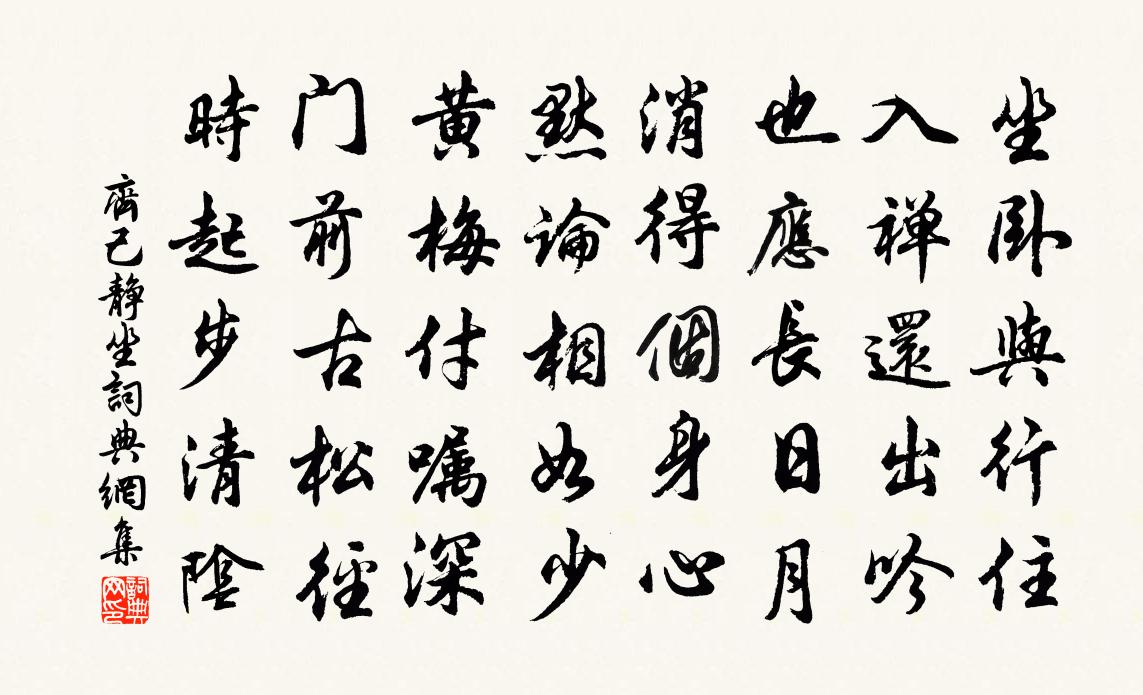 坐卧與行住
入禅還出吟
也應長日月
消得個身心
默論相如少
黄梅付嘱深
门前古松徑
時起步清陰
齊己靜坐詞典網集
詞典网印